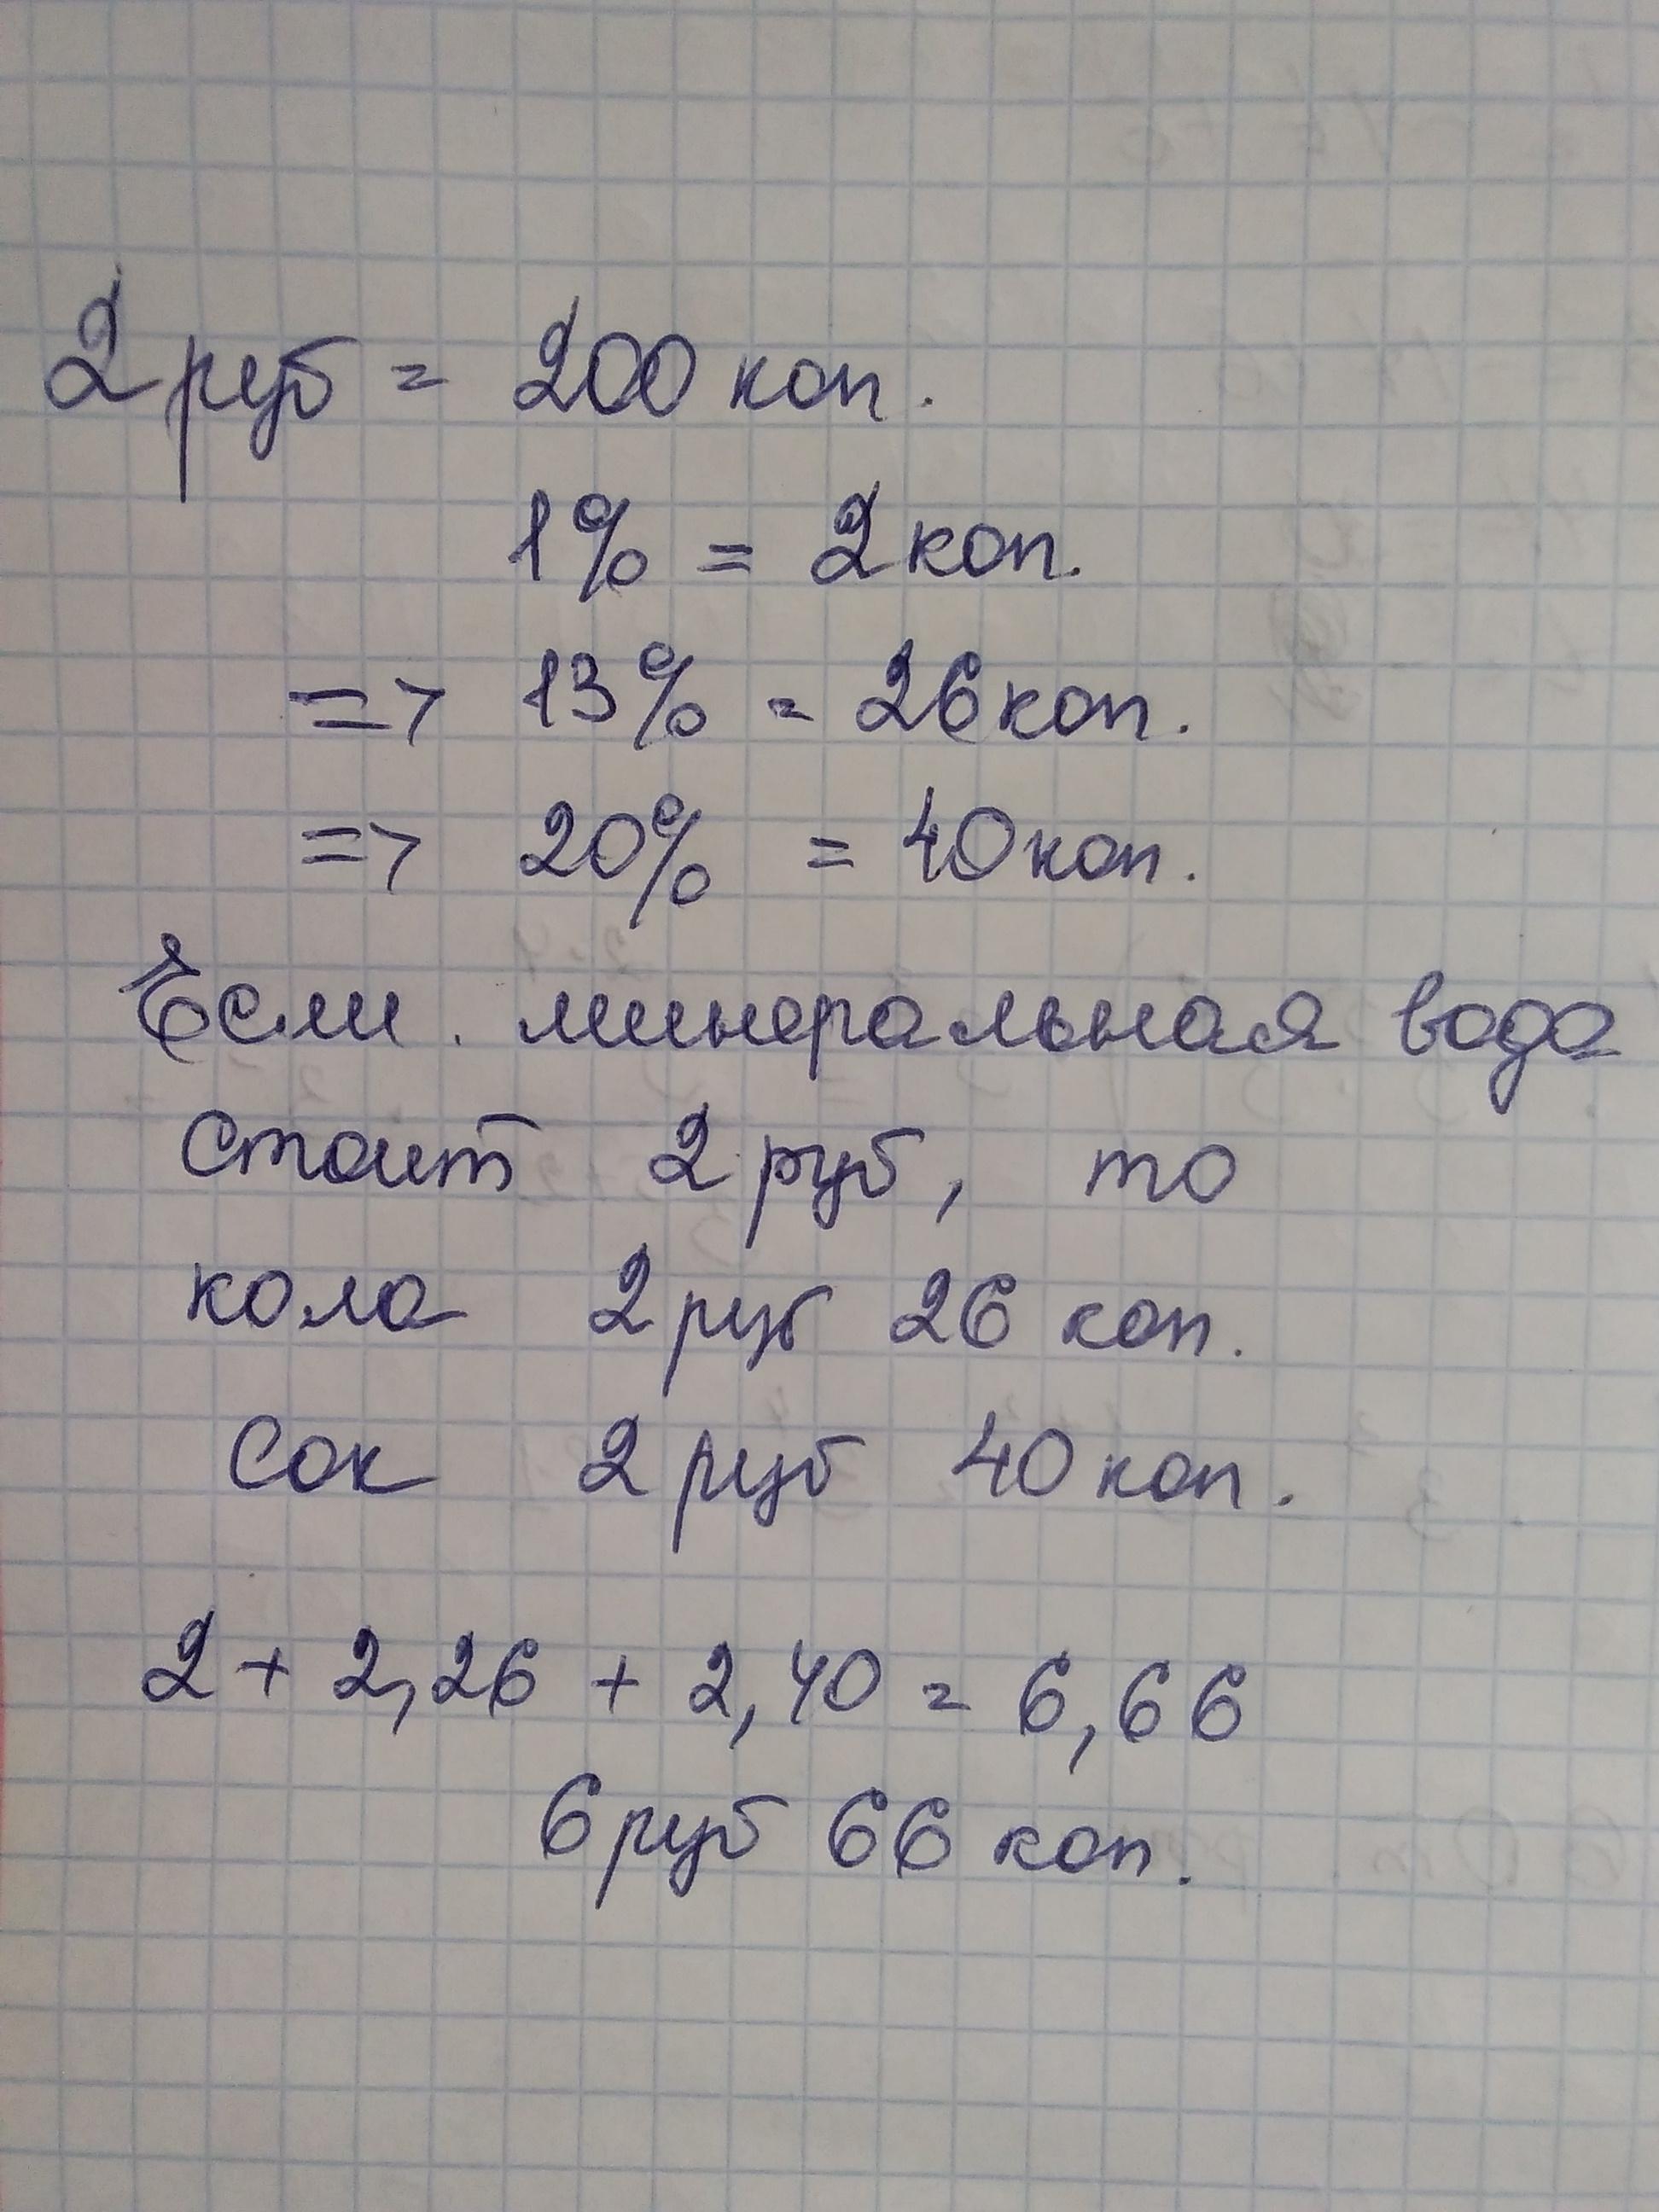 2 руб = 200 коп.
1% = 2 коп.
=> 13% = 26 коп.
=> 20% = 40 коп.
Если минеральная вода
стоит 2 руб, то
кола 2 руб 26 коп.
Сок 2 руб 40 коп.
2 + 2,26 + 2,40 = 6,66
6 руб 66 коп.